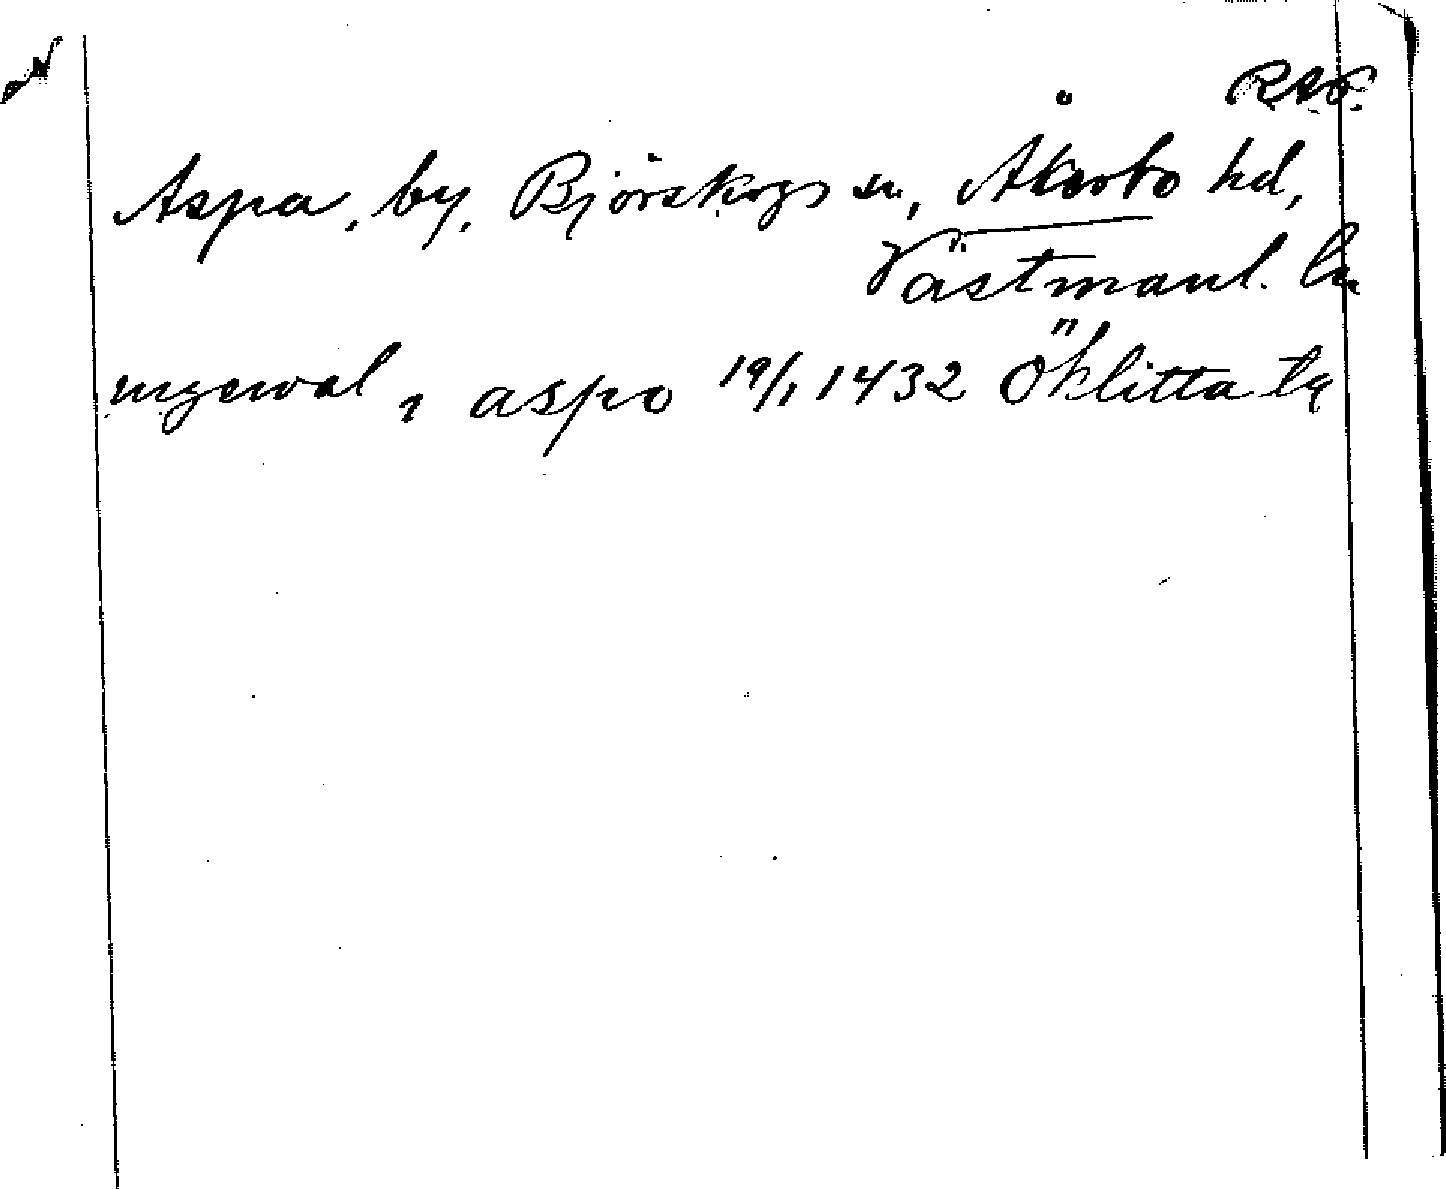 RAP.
Aspa, by, Björskogs sn, Åkerbo hd,
Västmanl. ln
ingewal i aspo 19/1 1432 Öklitta